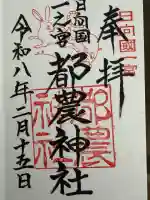 奉拝
日向國一之宮
日向国
一之宮
都農神社
都農
神社
令和八年二月十五日